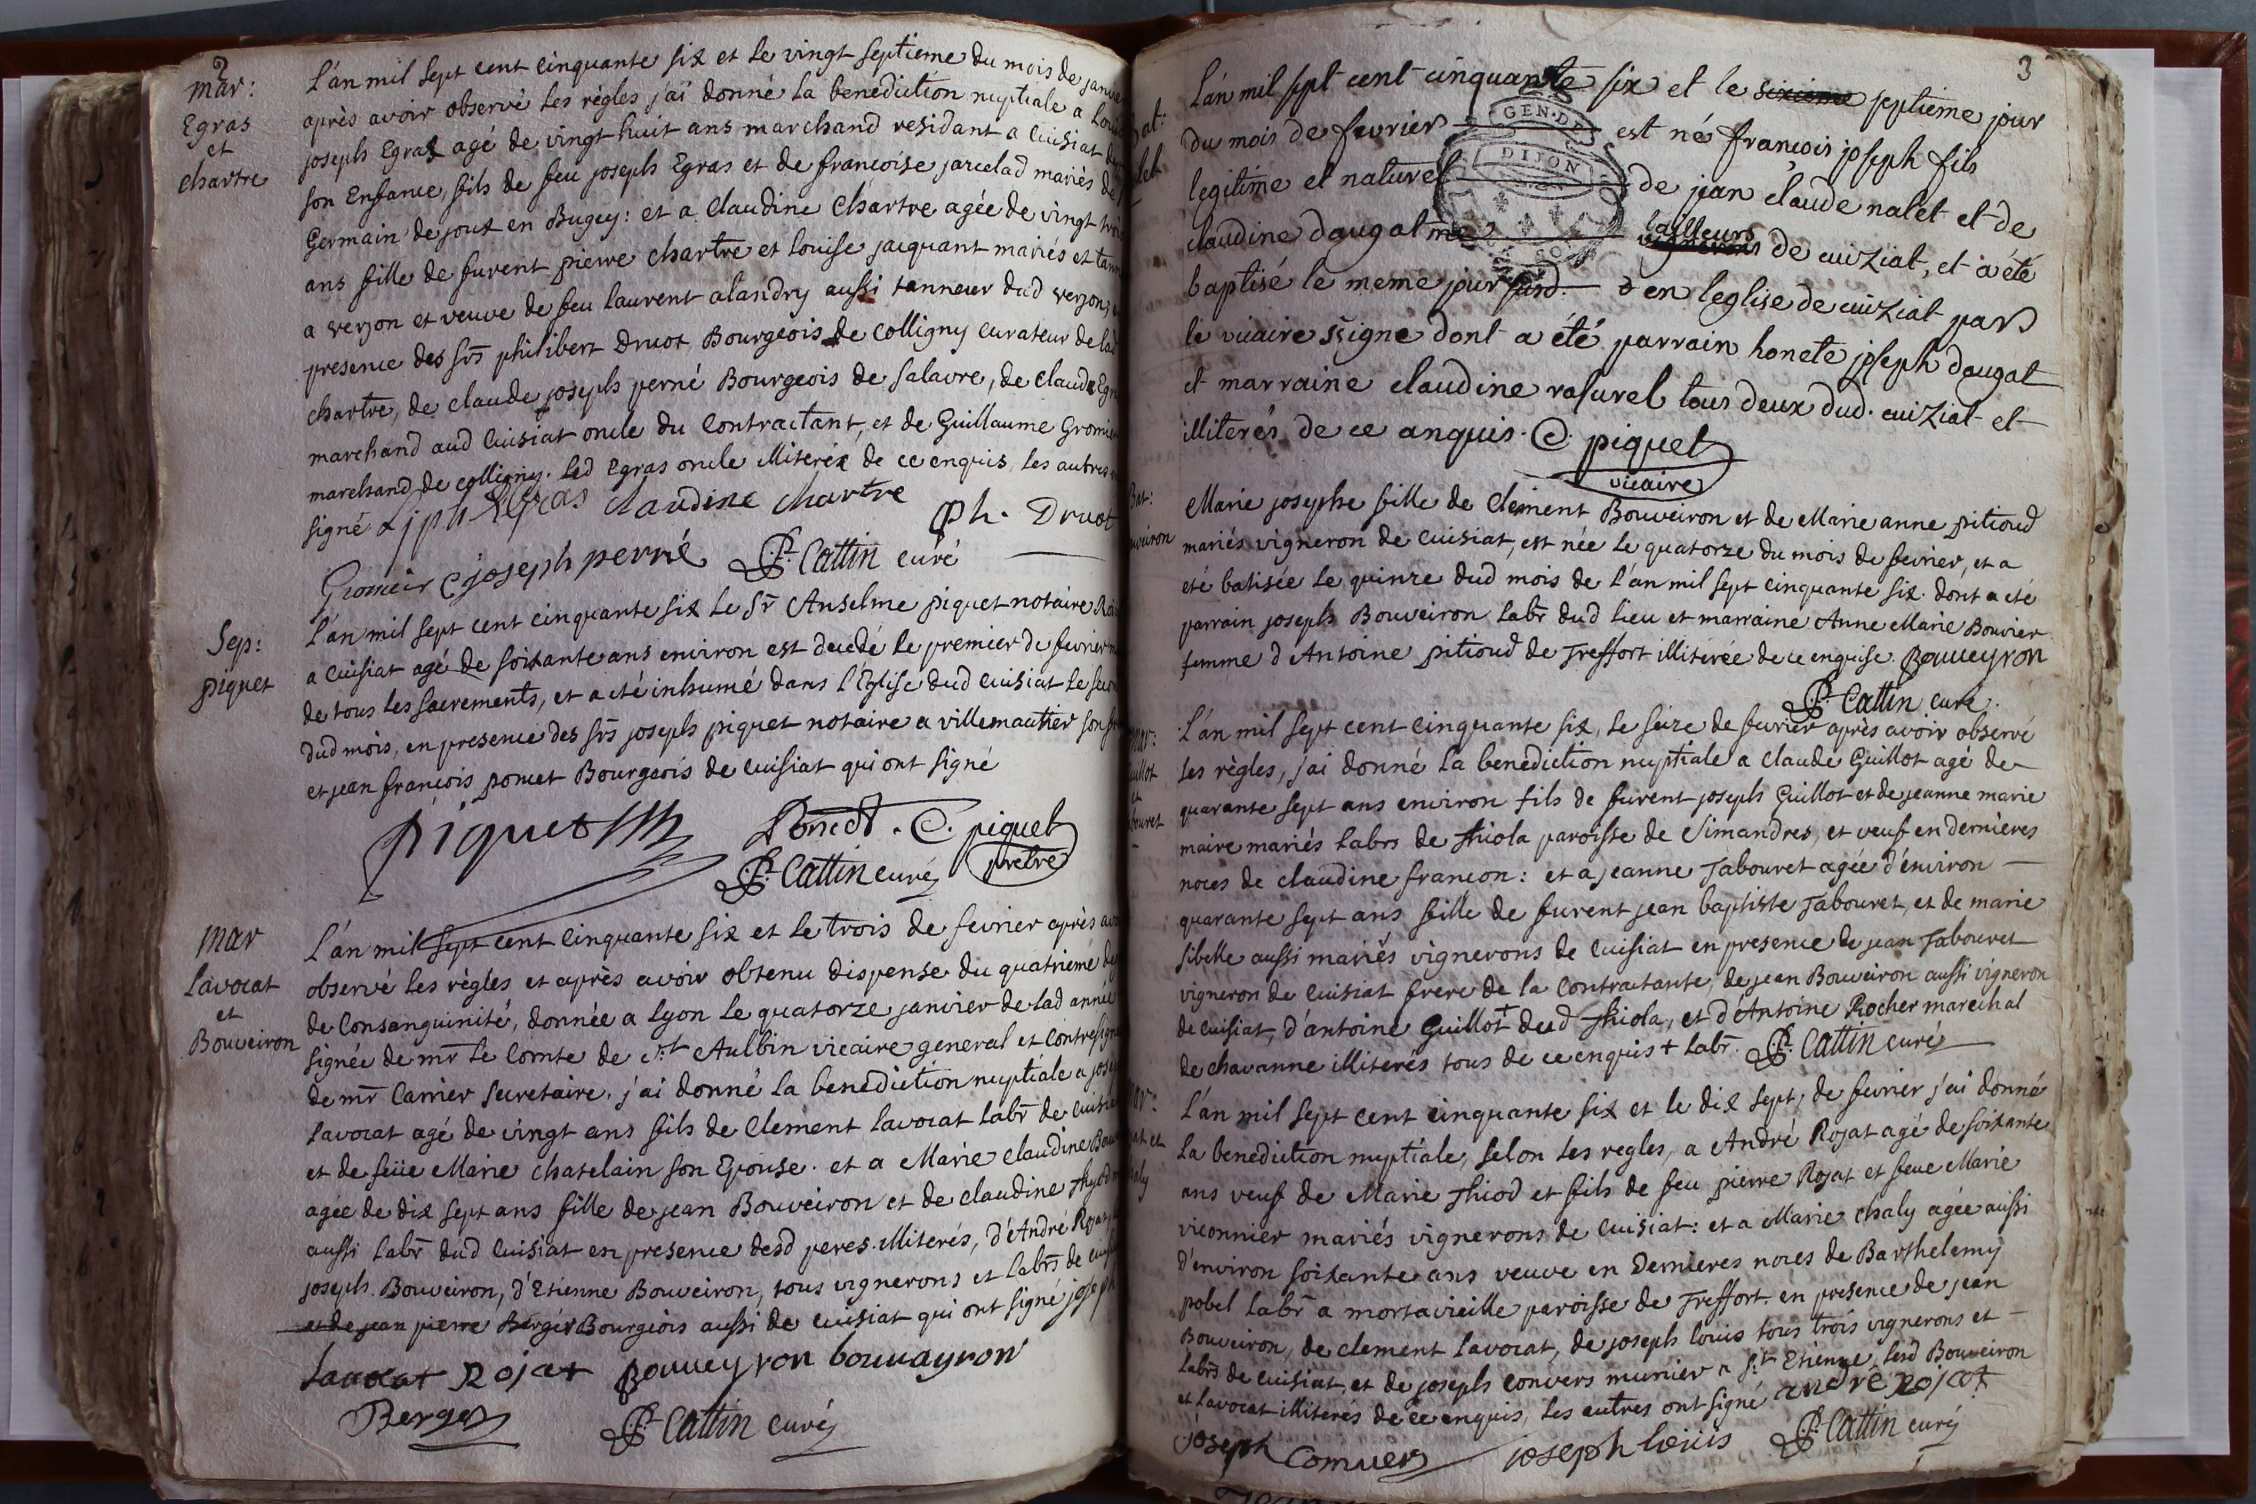 2
mar:
Egras
et
chartre
L'an mil sept cent cinquante six et le vingt septieme du mois de janvie
après avoir observé les règles j'ai donné la benediction nuptiale a Loui
joseph Egras agé de vingt huit ans marchand residant a Cuisiat de
son Enfance, fils de feu joseph Egras et de francoise jarcelad mariés de
Germain de joux en Bugey: et a Claudine Chartre agée de vingt troi
ans fille de furent pierre chartre et Louise jacquant mariés et tann
a verjon et veuve de feu laurent alandry aussi tanneur dud verjon, e
presence des srs philibert Druot, Bourgeois de Colligny curateur de lad
chartre, de claude joseph perné Bourgeois de Salavre, de claude Egra
marchand aud Cuisiat oncle du Contractant, et de Guillaume Gromie
marchand de colligny. led Egras oncle illiteré de ce enquis, les autres
signé L jph Egras claudine chartre Ph. Druot
Gromeir C joseph perné P. Cattin curé
Sep:
piquet
L'an mil sept cent cinquante six le Sr Anselme piquet notaire Roi
a Cuisiat agé de soixante ans environ est decedé le premier de fevrier m
de tous les sacrements, et a eté inhumé dans l'Eglise dud Cuisiat le secon
dud mois, en presence des srs joseph piquet notaire a villemautier son fr
et jean françois poncet Bourgeois de Cuisiat qui ont signé
piquet Poncet. C. piquet
P. Cattin curé prêtre
Mar
Lavocat
et
Bouveiron
L'an mil sept cent cinquante six et le trois de fevrier après avo
observé les règles et après avoir obtenu dispense du quatrieme de
de Consanguinité, donnée a Lyon le quatorze janvier de lad année
signée de mr le Comte de St Aulbin vicaire general et contresign
de mr Carrier secretaire. j'ai donné la benediction nuptiale a jose
Lavocat agé de vingt ans fils de Clement Lavocat labr de Cuisia
et de feüe Marie Chatelain son Epouse. et a Marie claudine Bou
agée de dix sept ans fille de jean Bouveiron et de claudine Thyod m
aussi labr dud Cuisiat en presence desd peres illiterés, d'André Rojat,
joseph Bouveiron, d'Etienne Bouveiron, tous vignerons et labrs de cuisia
et de jean pierre Berger Bourgeois aussi de Cuisiat qui ont signé joseph
lavocat Rojat Bouveyron bouvayron
Berger P. Cattin curé
3
bat:
let
L'an mil sept cent cinquante six et le sixieme septieme jour
du mois de fevrier est né françois joseph fils
legitime et naturel de jean claude nalet et de
claudine daugat me tailleurs vignerons de cuiziat, et a été
baptisé le meme jour susd. en leglise de cuiziat par
le vicaire ssigné dont a été parrain honete joseph daugat
et marraine claudine rasurel tous deux dud. cuiziat et
illiterés de ce anquis. C. piquet
vicaire
GEN. DE
DIJON
Bat:
uveiron
Marie josephe fille de Clement Bouveiron et de Marie anne pitioud
mariés vigneron de Cuisiat, est née le quatorze du mois de fevrier, et a
eté batisée le quinze dud mois de l'an mil sept cinquante six. dont a eté
parrain joseph Bouveiron labr dud lieu et marraine Anne Marie Bouvier
femme d'Antoine pitioud de Treffort illiterée de ce enquise. Bouveyron
P. Cattin curé.
mar:
uillot
et
bouret
L'an mil sept cent cinquante six, le seize de fevrier après avoir observé
les règles, j'ai donné la benediction nuptiale a claude Guillot agé de
quarante sept ans environ fils de furent joseph Guillot et de jeanne marie
maire mariés labrs de Thiola paroisse de Simandres, et veuf en dernières
noces de claudine francon: et a jeanne Tabouret agée d'environ
quarante sept ans fille de furent jean baptiste Tabouret, et de marie
sibelle aussi mariés vignerons de Cuisiat en presence de jean Tabouret
vigneron de Cuisiat frere de la Contractante, de jean Bouveiron aussi vigneron
de Cuisiat, d'antoine Guillot + dud Thiola, et d'Antoine Rocher marechal
de chavanne illiterés tous de ce enquis + labr. P. Cattin curé
mar:
at et
aly
L'an mil sept cent cinquante six et le dix sept, de fevrier j'ai donné
la benediction nuptiale, selon les regles, a André Rojat agé de soixante
ans veuf de Marie Thiod et fils de feu pierre Rojat et feue Marie
viconnier mariés vignerons de Cuisiat: et a Marie chaly agée aussi
d'environ soixante ans veuve en Dernieres noces de Barthelemy
pobel labr a mortavieille paroisse de Treffort. en presence de jean
Bouveiron, de clement Lavocat, de joseph louis tous trois vignerons et
labrs de Cuisiat, et de joseph convers munier a St Etienne, lesd Bouveiron
et Lavocat illiterés de ce enquis, les autres ont signé andré rojat
joseph Convers joseph loüis P. Cattin curé